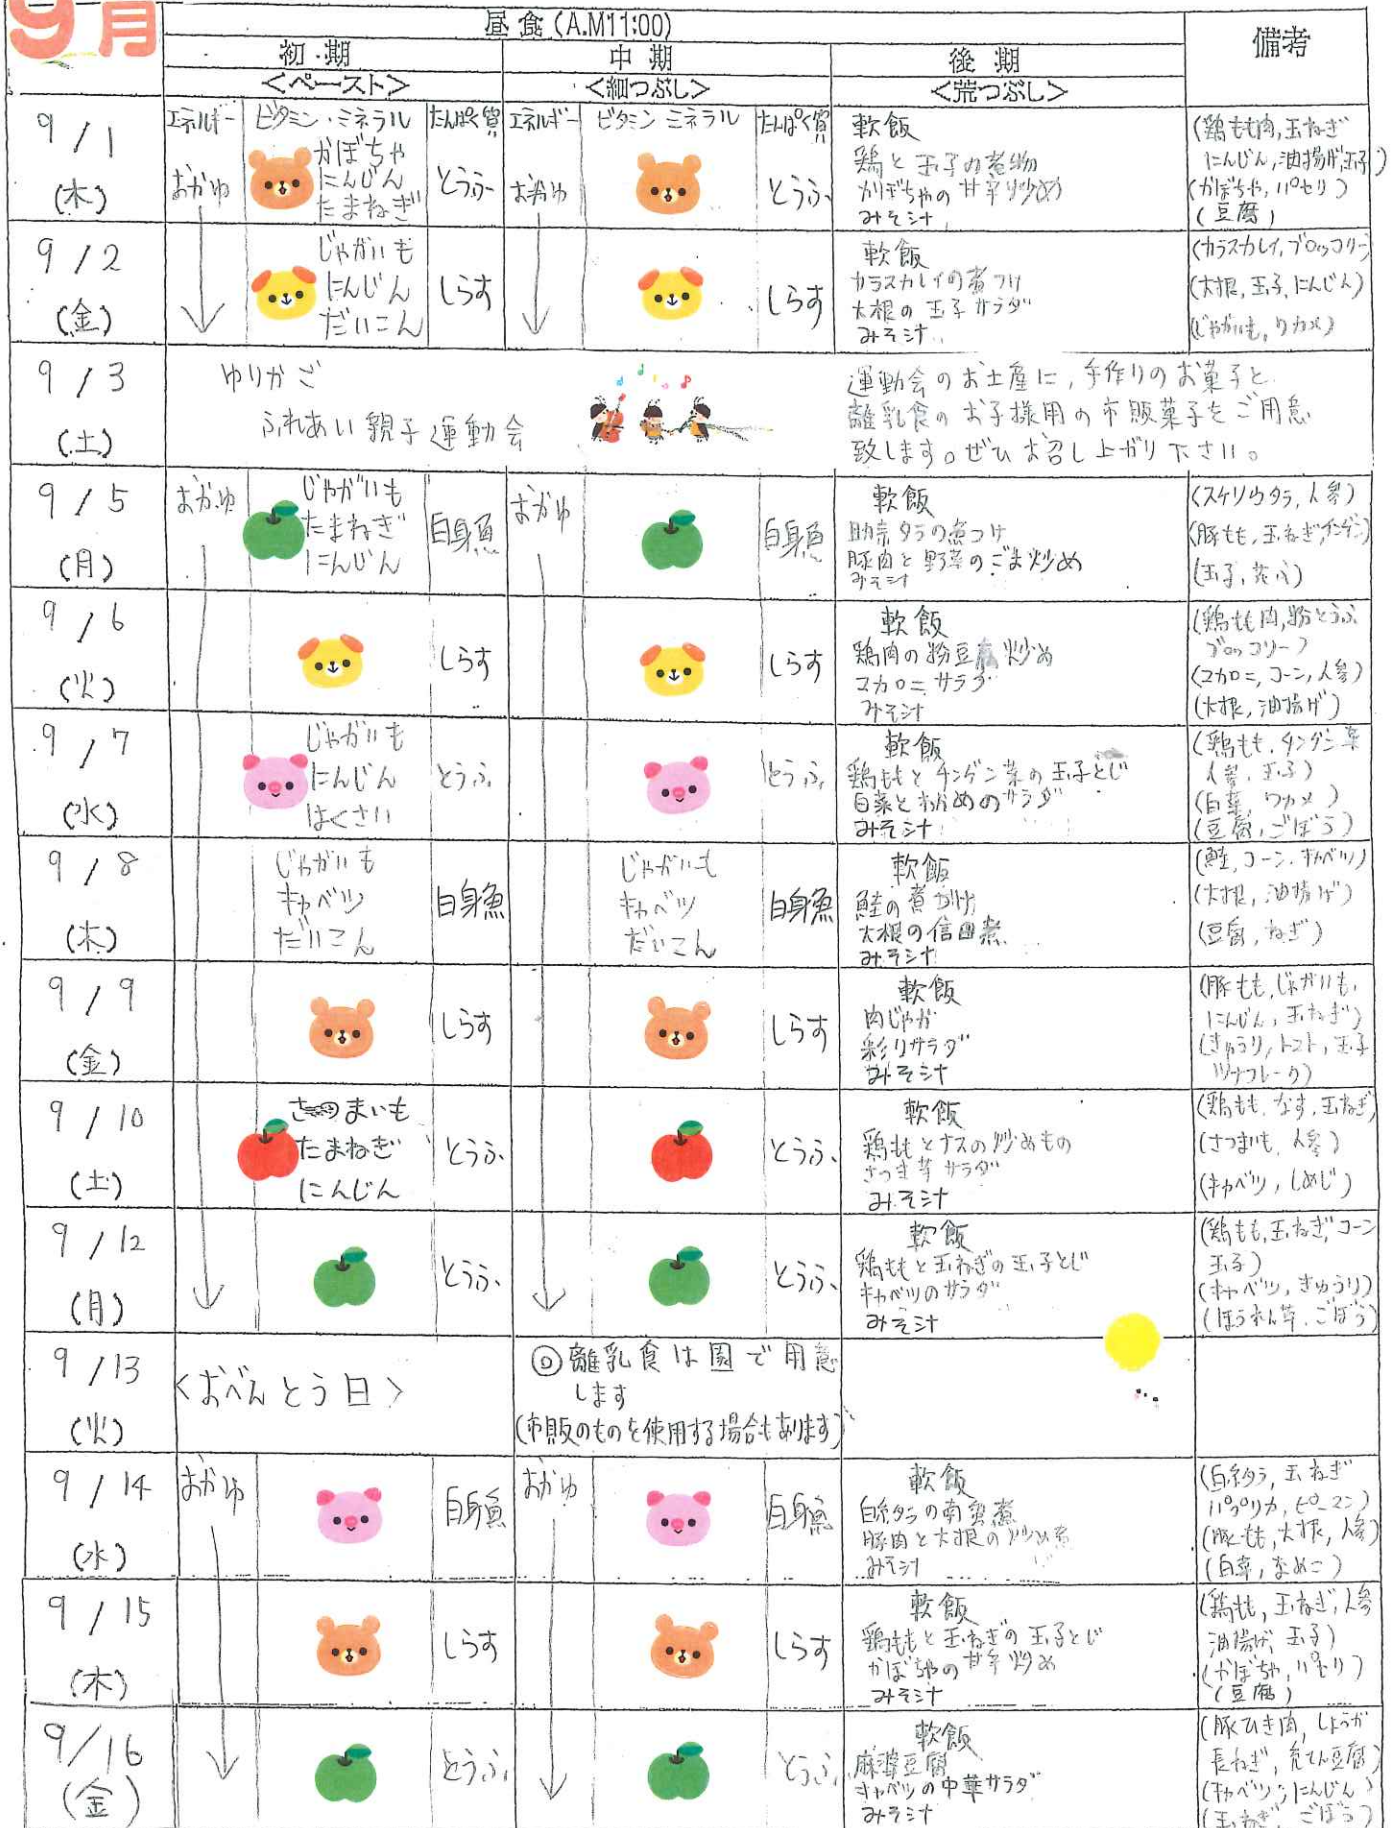 9月
昼食(A.M11:00)
備考
初期
中期
後期
<ペースト>
<細つぶし>
<荒つぶし>
9/1
(木)
エネルギー
ビタミン・ミネラル
たんぱく質
エネルギー
ビタミン ミネラル
たんぱく質
おかゆ
かぼちゃ
にんじん
たまねぎ
とうふ
おかゆ
とうふ
軟飯
鶏と玉子の煮物
かぼちゃの甘辛炒め
みそ汁
(鶏もも肉,玉ねぎ
にんじん,油揚げ,玉子)
(かぼちゃ,パセリ)
(豆腐)
9/2
(金)
じゃがいも
にんじん
だいこん
しらす
しらす
軟飯
カラスカレイの煮つけ
大根の玉子サラダ
みそ汁
(カラスカレイ,ブロッコリー)
(大根,玉子,にんじん)
(じゃがいも,ワカメ)
9/3
(土)
ゆりかご
ふれあい親子運動会
運動会のお土産に,手作りのお菓子と
離乳食のお子様用の市販菓子をご用意
致します。ぜひお召し上がり下さい。
9/5
(月)
おかゆ
じゃがいも
たまねぎ
にんじん
白身魚
おかゆ
白身魚
軟飯
助宗タラの煮つけ
豚肉と野菜のごま炒め
みそ汁
(スケソウタラ,人参)
(豚もも,玉ねぎ,インゲン)
(玉子,花ふ)
9/6
(火)
しらす
しらす
軟飯
鶏肉の粉豆腐炒め
マカロニサラダ
みそ汁
(鶏もも肉,粉とうふ
ブロッコリー)
(マカロニ,コーン,人参)
(大根,油揚げ)
9/7
(水)
じゃがいも
にんじん
はくさい
とうふ
とうふ
軟飯
鶏ももとチンゲン菜の玉子とじ
白菜とわかめのサラダ
みそ汁
(鶏もも,チンゲン菜
人参,玉子)
(白菜,ワカメ)
(豆腐,ごぼう)
9/8
(木)
じゃがいも
キャベツ
だいこん
白身魚
じゃがいも
キャベツ
だいこん
白身魚
軟飯
鮭の煮つけ
大根の信田煮
みそ汁
(鮭,コーン,キャベツ)
(大根,油揚げ)
(豆腐,ねぎ)
9/9
(金)
しらす
しらす
軟飯
肉じゃが
彩りサラダ
みそ汁
(豚もも,じゃがいも,
にんじん,玉ねぎ)
(きゅうり,トマト,玉子
ツナフレーク)
9/10
(土)
さつまいも
たまねぎ
にんじん
とうふ
とうふ
軟飯
鶏ももとナスの炒めもの
さつま芋サラダ
みそ汁
(鶏もも,なす,玉ねぎ)
(さつまいも,人参)
(キャベツ,しめじ)
9/12
(月)
とうふ
とうふ
軟飯
鶏ももと玉ねぎの玉子とじ
キャベツのサラダ
みそ汁
(鶏もも,玉ねぎ,コーン
玉子)
(キャベツ,きゅうり)
(ほうれん草,ごぼう)
9/13
(火)
<おべんとう日>
◎離乳食は園で用意
します
(市販のものを使用する場合もあります)
9/14
(水)
おかゆ
白身魚
おかゆ
白身魚
軟飯
白糸タラの南蛮煮
豚肉と大根の炒め煮
みそ汁
(白糸タラ,玉ねぎ
パプリカ,ピーマン)
(豚もも,大根,人参)
(白菜,なめこ)
9/15
(木)
しらす
しらす
軟飯
鶏ももと玉ねぎの玉子とじ
かぼちゃの甘辛炒め
みそ汁
(鶏もも,玉ねぎ,人参
油揚げ,玉子)
(かぼちゃ,パセリ)
(豆腐)
9/16
(金)
とうふ
とうふ
軟飯
麻婆豆腐
キャベツの中華サラダ
みそ汁
(豚ひき肉,しょうが
長ねぎ,充てん豆腐)
(キャベツ,にんじん)
(玉ねぎ,ごぼう)